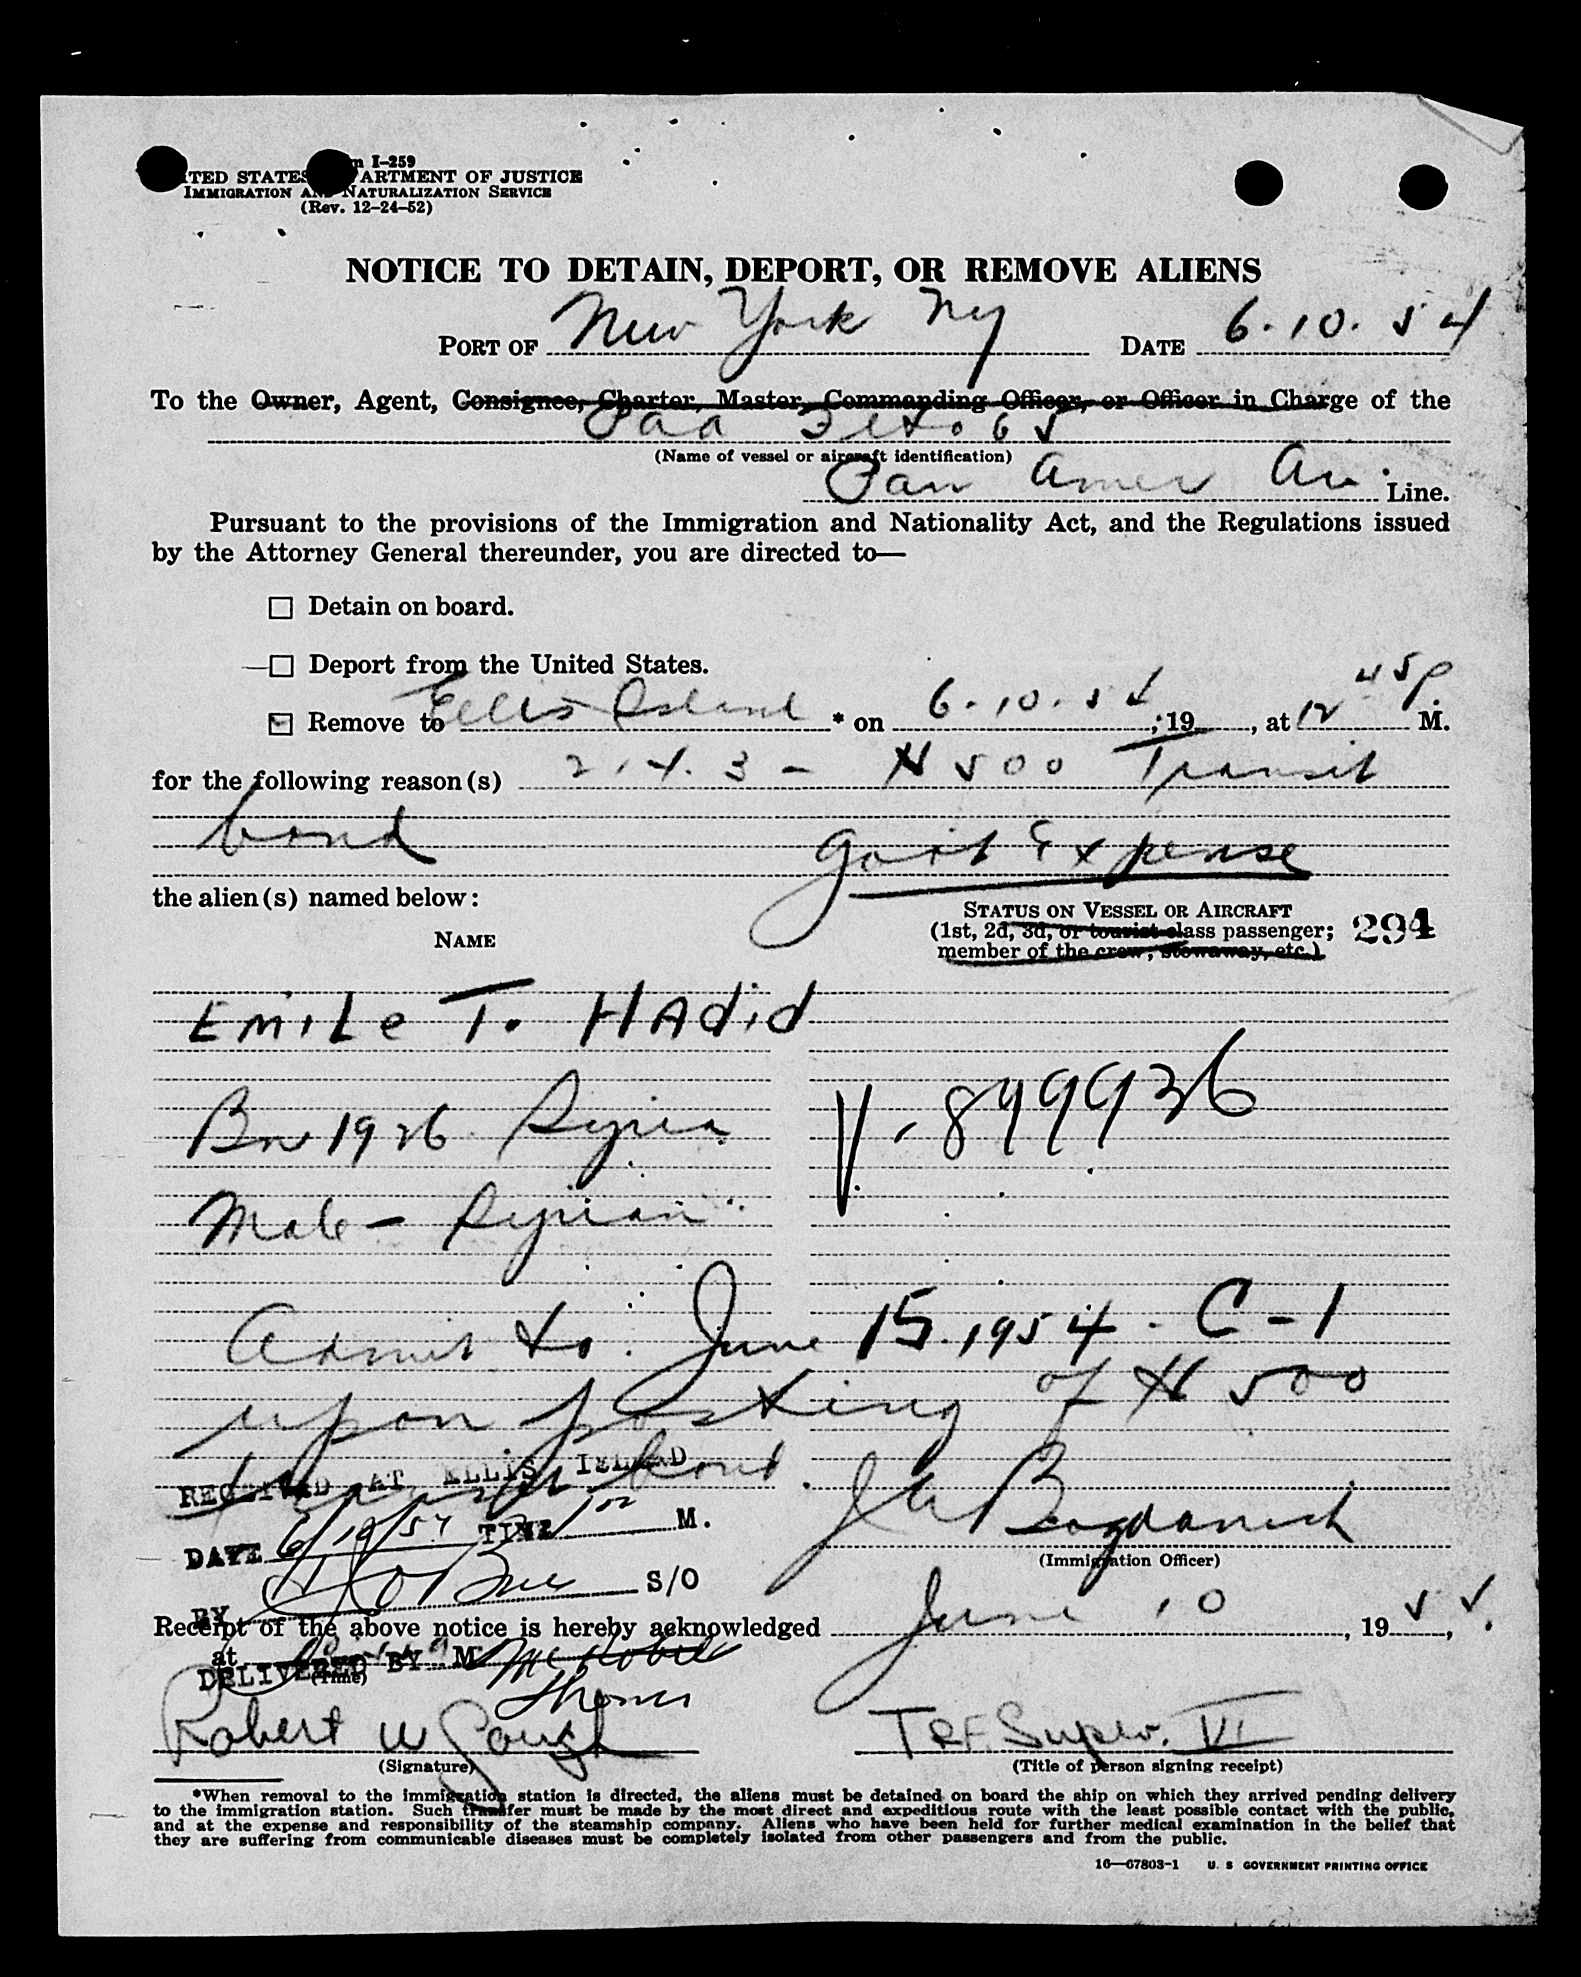 I-259
TED STATES ARTMENT OF JUSTICE
IMMIGRATION AND NATURALIZATION SERVICE
(Rev. 12-24-52)
NOTICE TO DETAIN, DEPORT, OR REMOVE ALIENS
PORT OF New York Ny DATE 6.10.54
To the Owner, Agent, Consignee, Charter, Master, Commanding Officer, or Officer in Charge of the
Paa 65
(Name of vessel or aircraft identification)
Pan Amer Line.
Pursuant to the provisions of the Immigration and Nationality Act, and the Regulations issued
by the Attorney General thereunder, you are directed to—
☐ Detain on board.
☐ Deport from the United States.
Remove to Ellis Island * on 6.10.54, 19, at 12 45 P. M.
for the following reason(s) 214.3 - $500 Transit
bond
Gov't Expense
the alien(s) named below:
STATUS ON VESSEL OR AIRCRAFT
(1st, 2d, 3d, or tourist class passenger; 294
NAME
member of the crew, stowaway, etc.)
Emile T. HAdid
Bn 1926 Syria
V-899936
Male - Syrian
Admit to June 15, 1954 - C-1
upon posting of $500
bond.
RECEIVED AT ELLIS ISLAND
DATE 6/10/54 TIME 1 M.
Bogdanich
(Immigration Officer)
BY S/O
Receipt of the above notice is hereby acknowledged June 10, 19
at M
(Time)
DELIVERED BY
Thomas
Robert W Gough
TRF. Superv. VI
(Signature)
(Title of person signing receipt)
*When removal to the immigration station is directed, the aliens must be detained on board the ship on which they arrived pending delivery
to the immigration station. Such transfer must be made by the most direct and expeditious route with the least possible contact with the public,
and at the expense and responsibility of the steamship company. Aliens who have been held for further medical examination in the belief that
they are suffering from communicable diseases must be completely isolated from other passengers and from the public.
16—67803-1 U. S GOVERNMENT PRINTING OFFICE